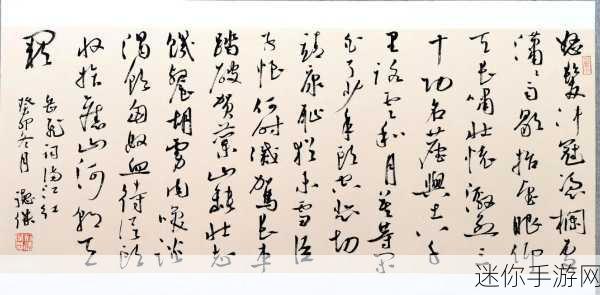 怒髮沖冠憑欄處
瀟瀟雨歇抬望眼仰
天長嘯壯懷激烈三
十功名塵與土八千
里路雲和月莫等閑
白了少年頭空悲切
靖康恥猶未雪臣
子恨何時滅駕長車
踏破賀蘭山缺壯志
飢餐胡虜肉笑談
渴飲匈奴血待從頭
收拾舊山河朝天
闕
岳飛詞滿江紅
癸卯冬月
迷你手游网